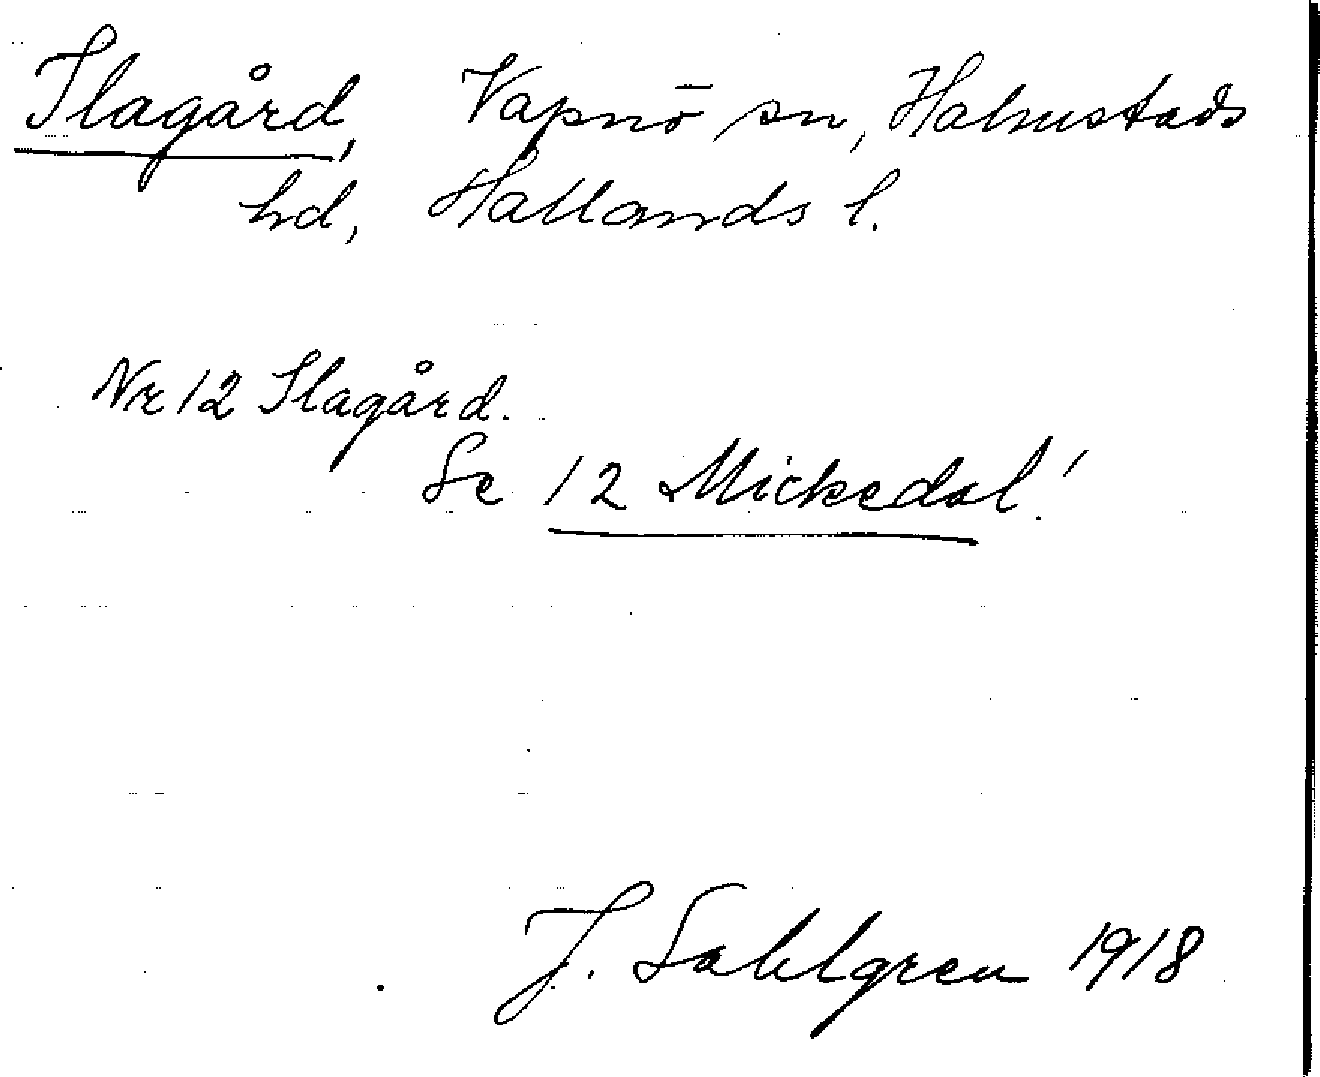 Ilagård, Vapnö sn, Halmstads
hd, Hallands l.
Nr 12 Ilagård.
Se 12 Mickedal!
J. Sahlgren 1918